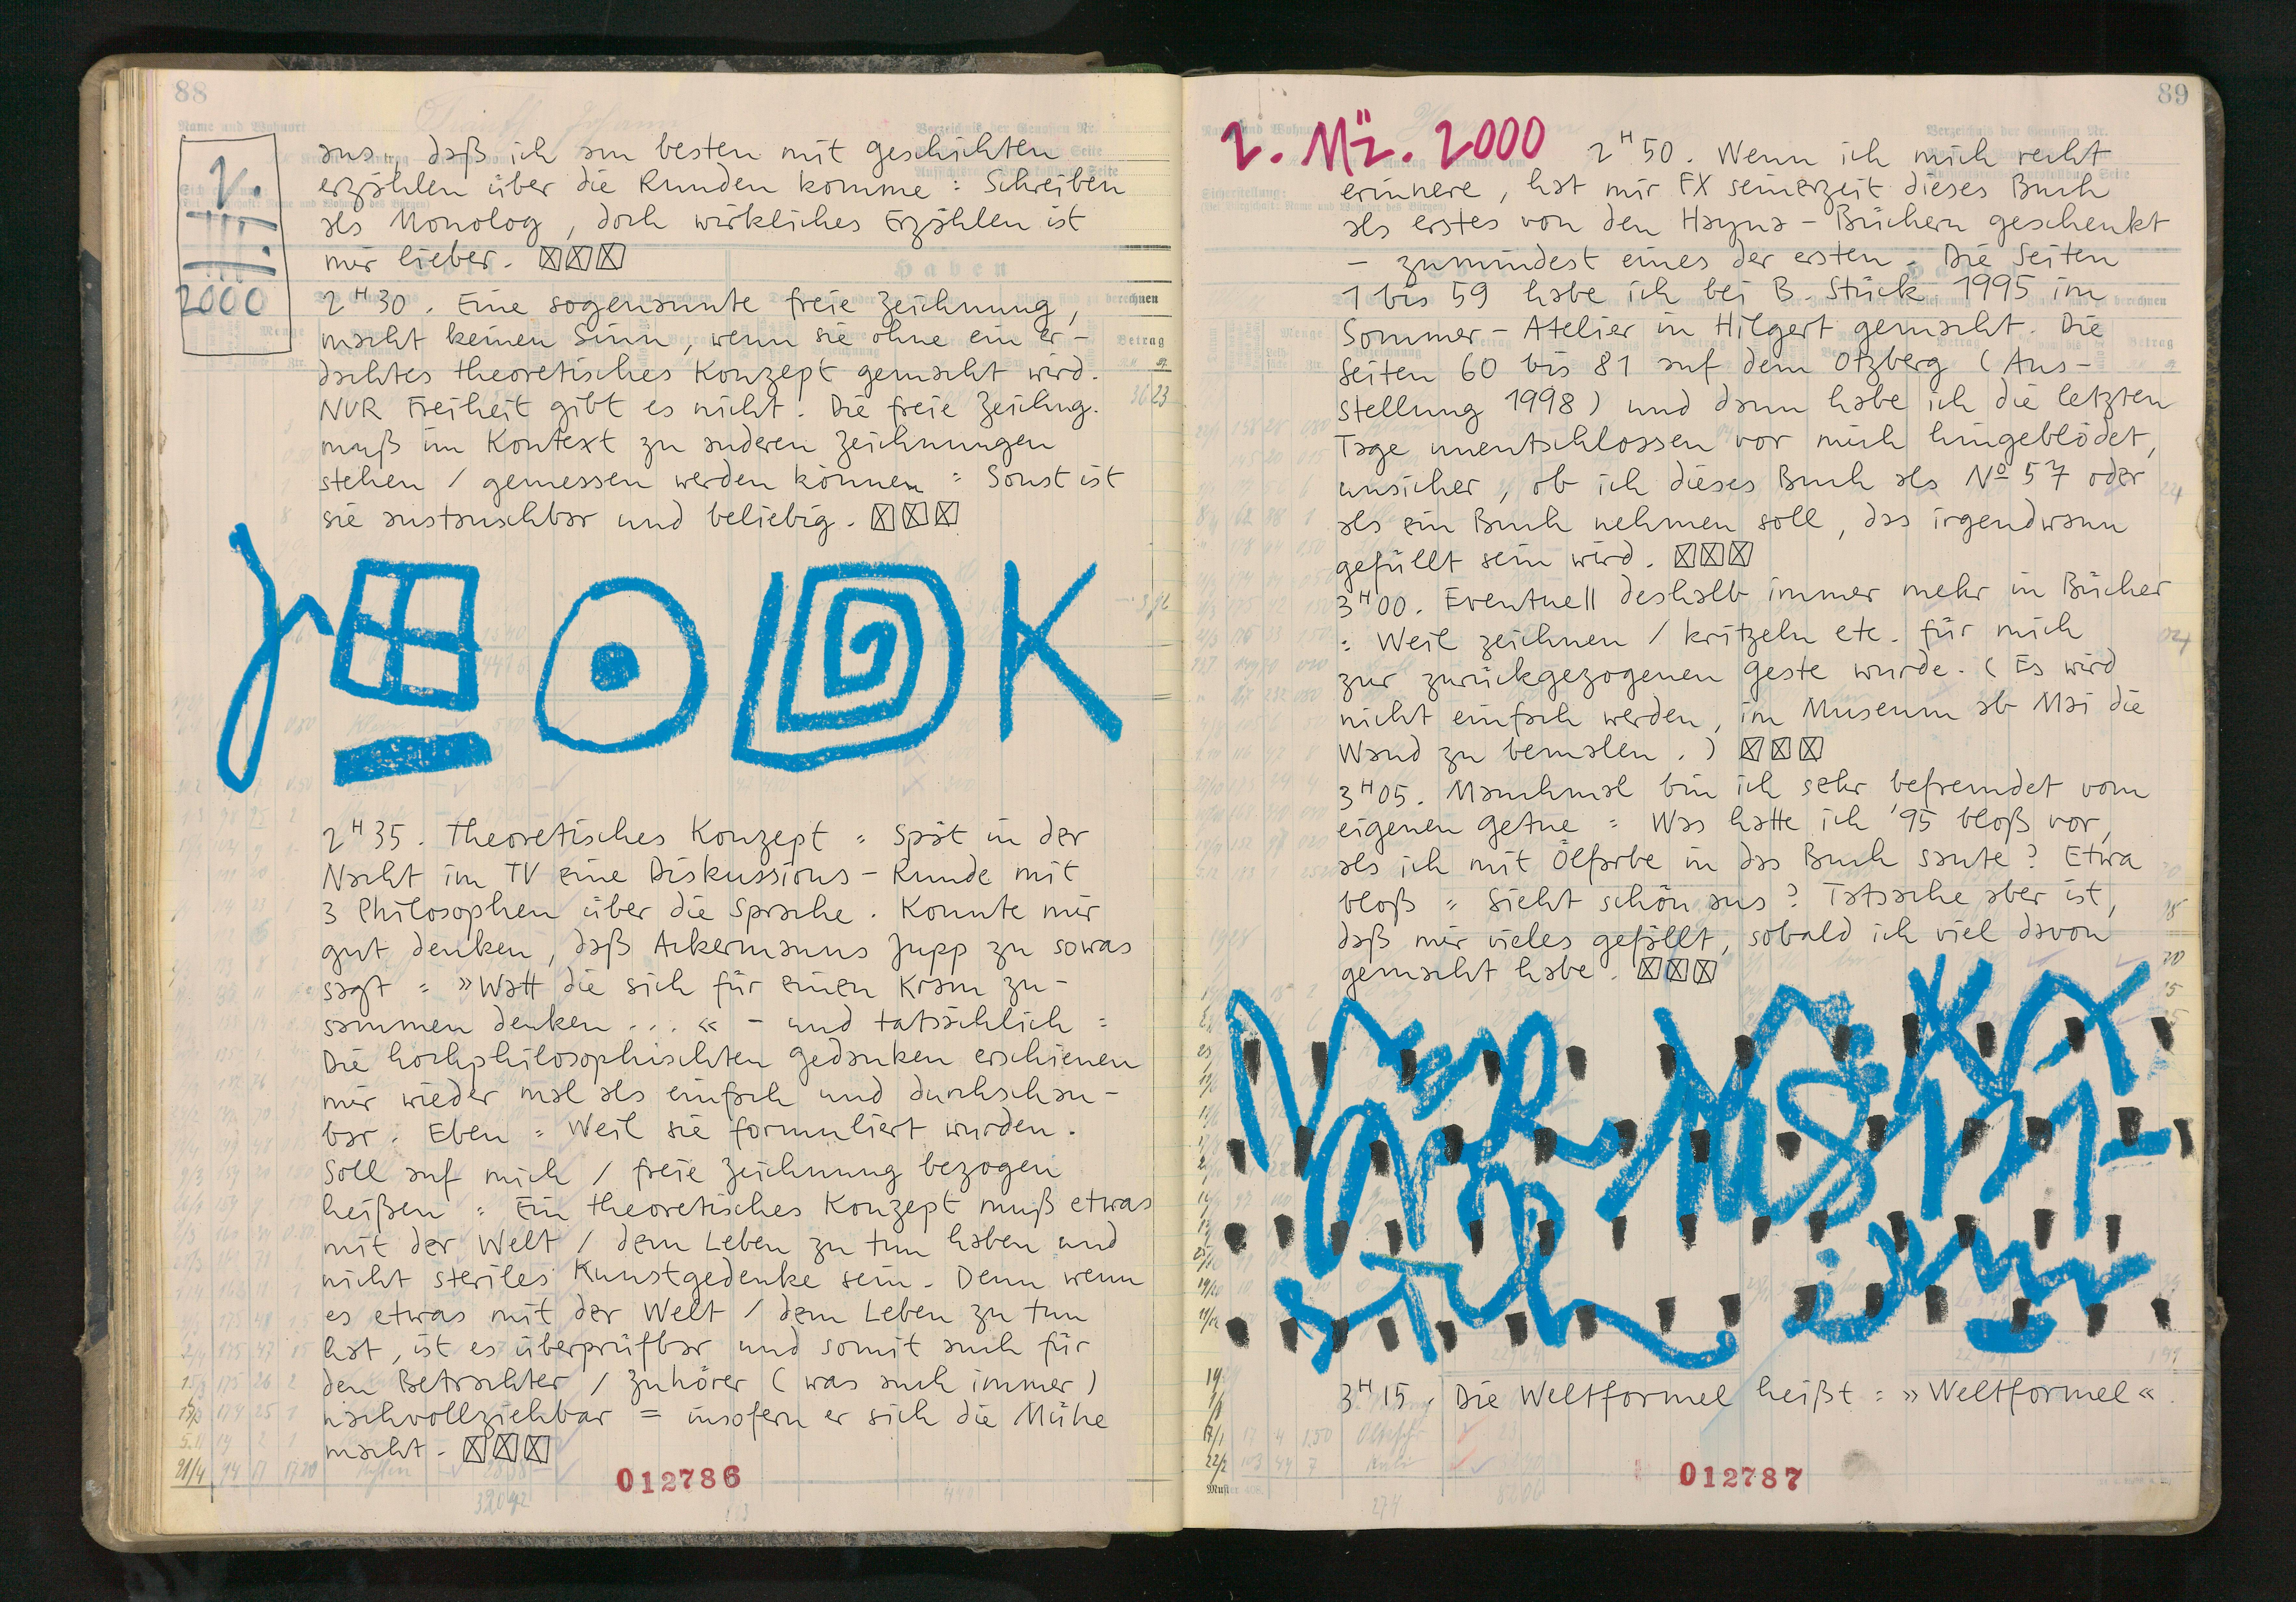 88
2.
III.
2000
aus, daß ich am besten mit geschichten
erzählen über die Runden komme = Schreiben
als Monolog, doch wirkliches Erzählen ist
mir lieber.
2 H 30. Eine sogenannte freie Zeichnung,
macht keinen Sinn, wenn sie ohne ein er-
dachtes theoretisches Konzept gemacht wird.
NUR Freiheit gibt es nicht. Die freie Zeichng.
muß im Kontext zu anderen Zeichnungen
stehen / gemessen werden können = Sonst ist
sie austauschbar und beliebig.
2 H 35. Theoretisches Konzept = Spät in der
Nacht im TV eine Diskussions-Runde mit
3 Philosophen über die Sprache. Konnte mir
gut denken, daß Ackermanns Jupp zu sowas
sagt = »Watt die sich für einen Kram zu-
sammen denken...« - und tatsächlich =
Die hochphilosophischten gedanken erschienen
mir wieder mal als einfach und durchschau-
bar. Eben = Weil sie formuliert wurden.
Soll auf mich / freie Zeichnung bezogen
heißen = Ein theoretisches Konzept muß etwas
mit der Welt / dem Leben zu tun haben und
nicht steriles Kunstgedenke sein. Denn wenn
es etwas mit der Welt / dem Leben zu tun
hat, ist es überprüfbar und somit auch für
den Betrachter / Zuhörer (was auch immer)
nachvollziehbar = insofern er sich die Mühe
macht.
012786
89
2. Mä. 2000
2 H 50. Wenn ich mich recht
erinnere, hat mir FX seinerzeit dieses Buch
als erstes von den Hayna-Büchern geschenkt
- zumindest eines der ersten. Die Seiten
1 bis 59 habe ich bei B. Stück 1995 im
Sommer-Atelier in Hilgert gemacht. Die
Seiten 60 bis 81 auf dem Otzberg (Aus-
stellung 1998) und dann habe ich die letzten
Tage unentschlossen vor mich hingeblödet,
unsicher, ob ich dieses Buch als Nº 57 oder
als ein Buch nehmen soll, das irgendwann
gefüllt sein wird.
3 H 00. Eventuell deshalb immer mehr in Bücher
= Weil zeichnen / kritzeln etc. für mich
zur zurückgezogenen geste wurde. (Es wird
nicht einfach werden, im Museum ab Mai die
Wand zu bemalen.)
3 H 05. Manchmal bin ich sehr befremdet vom
eigenen getue = Was hatte ich '95 bloß vor,
als ich mit Ölfarbe in das Buch saute? Etwa
bloß = Sieht schön aus? Tatsache aber ist,
daß mir vieles gefällt, sobald ich viel davon
gemacht habe.
3 H 15. Die Weltformel heißt = »Weltformel«.
012787